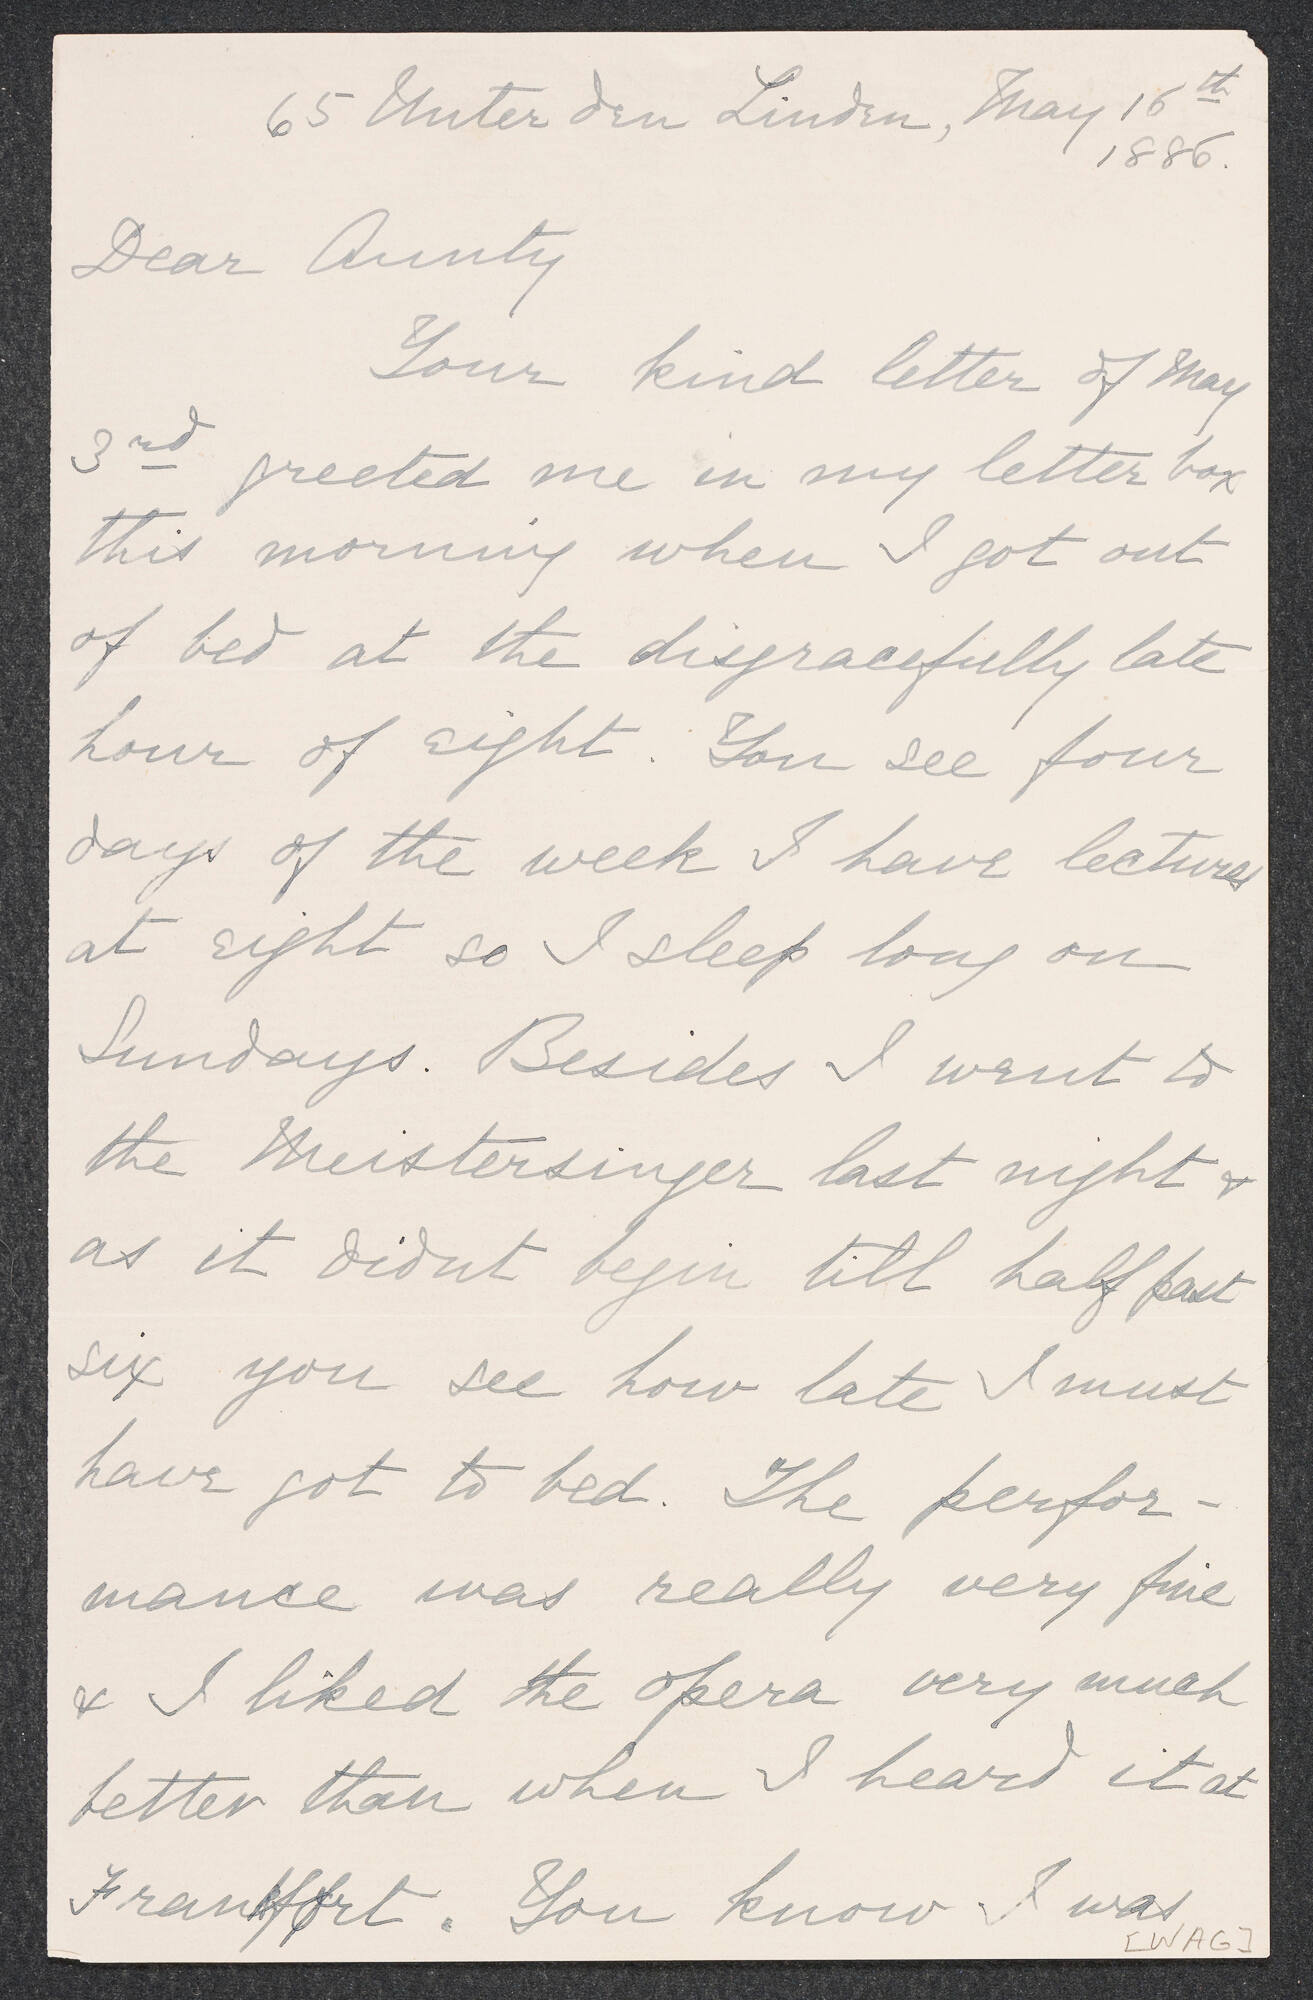 65 Unter den Linden, May 16th
1886.
Dear Aunty
Your kind letter of May
3rd greeted me in my letter box
this morning when I got out
of bed at the disgracefully late
hour of eight. You see four
days of the week I have lectures
at eight so I sleep long on
Sundays. Besides I went to
the Meistersinger last night &
as it didnt begin till half past
six you see how late I must
have got to bed. The perfor-
mance was really very fine
& I liked the opera very much
better than when I heard it at
Frankfort. You know I was
[WAG]